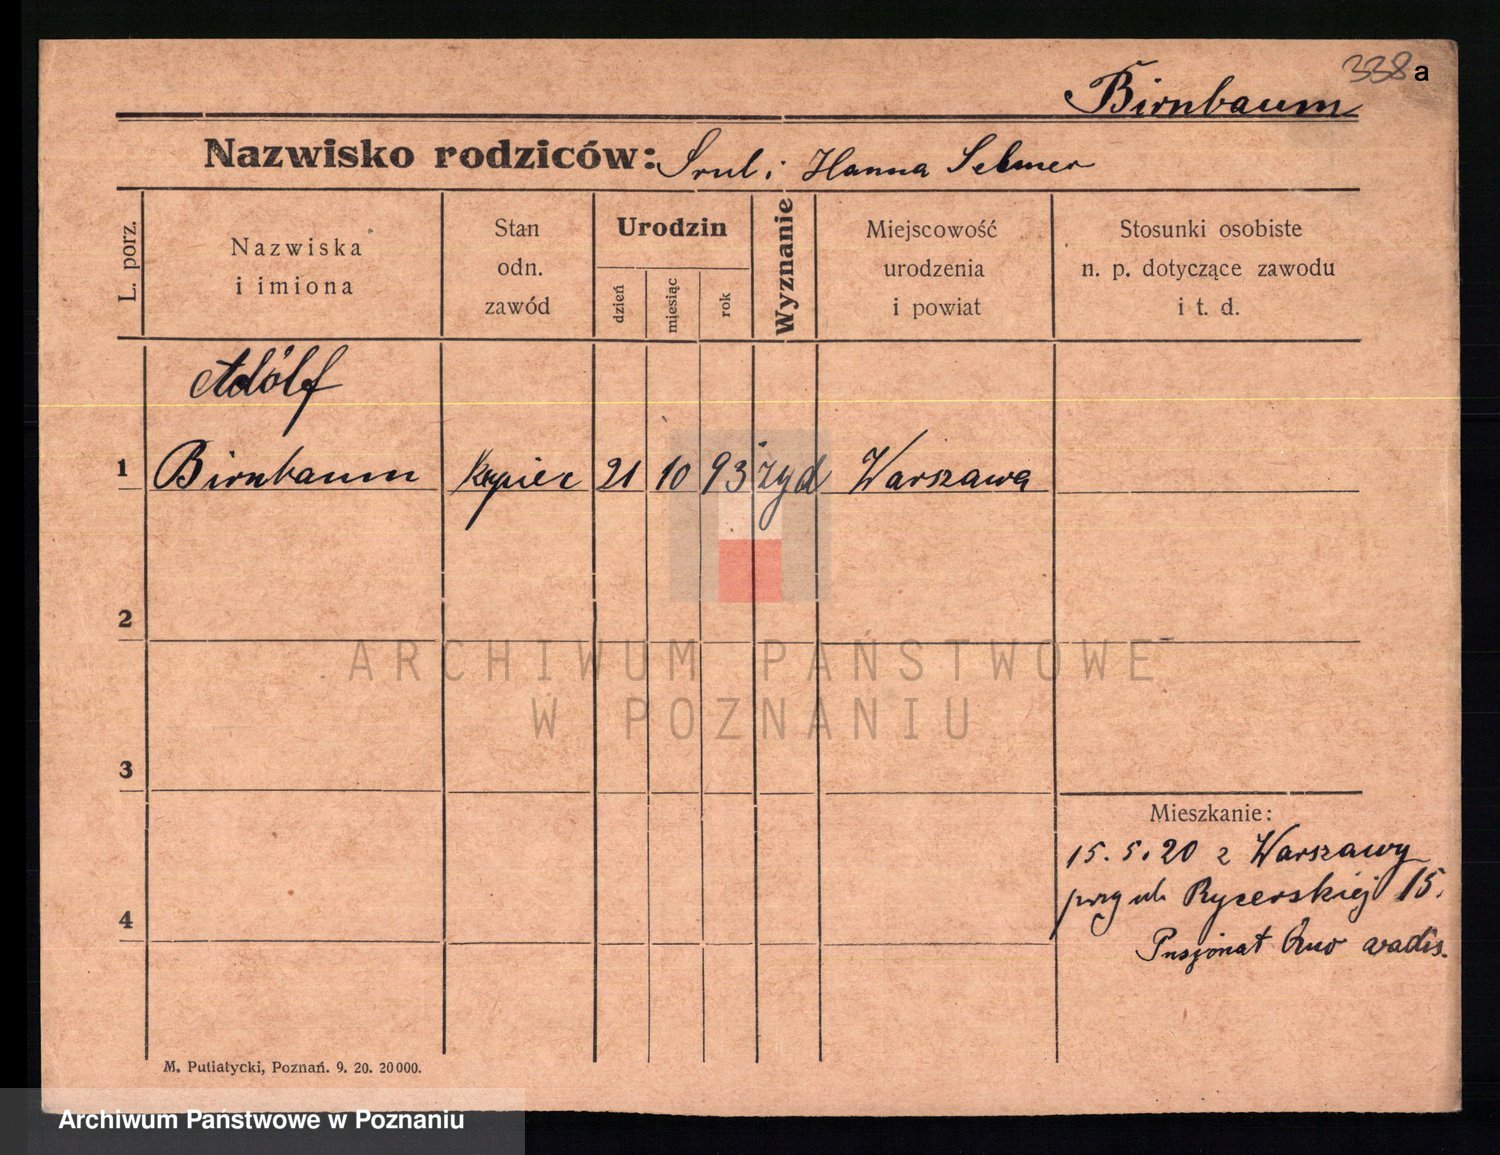 338 a
Birnbaum
Nazwisko rodziców: Srul i Hanna Selmer
L. porz.
Nazwiska
i imiona
Stan
odn.
zawód
Urodzin
dzień
miesiąc
rok
Wyznanie
Miejscowość
urodzenia
i powiat
Stosunki osobiste
n. p. dotyczące zawodu
i t. d.
Adolf
1 Birnbaum kupiec 21 10 93 żyd Warszawa
2
ARCHIWUM PAŃSTWOWE
W POZNANIU
3
Mieszkanie:
15. 5. 20 z Warszawy
przy ul. Rycerskiej 15.
4
Pensjonat Quo vadis.
M. Putiatycki, Poznań. 9. 20. 20 000.
Archiwum Państwowe w Poznaniu